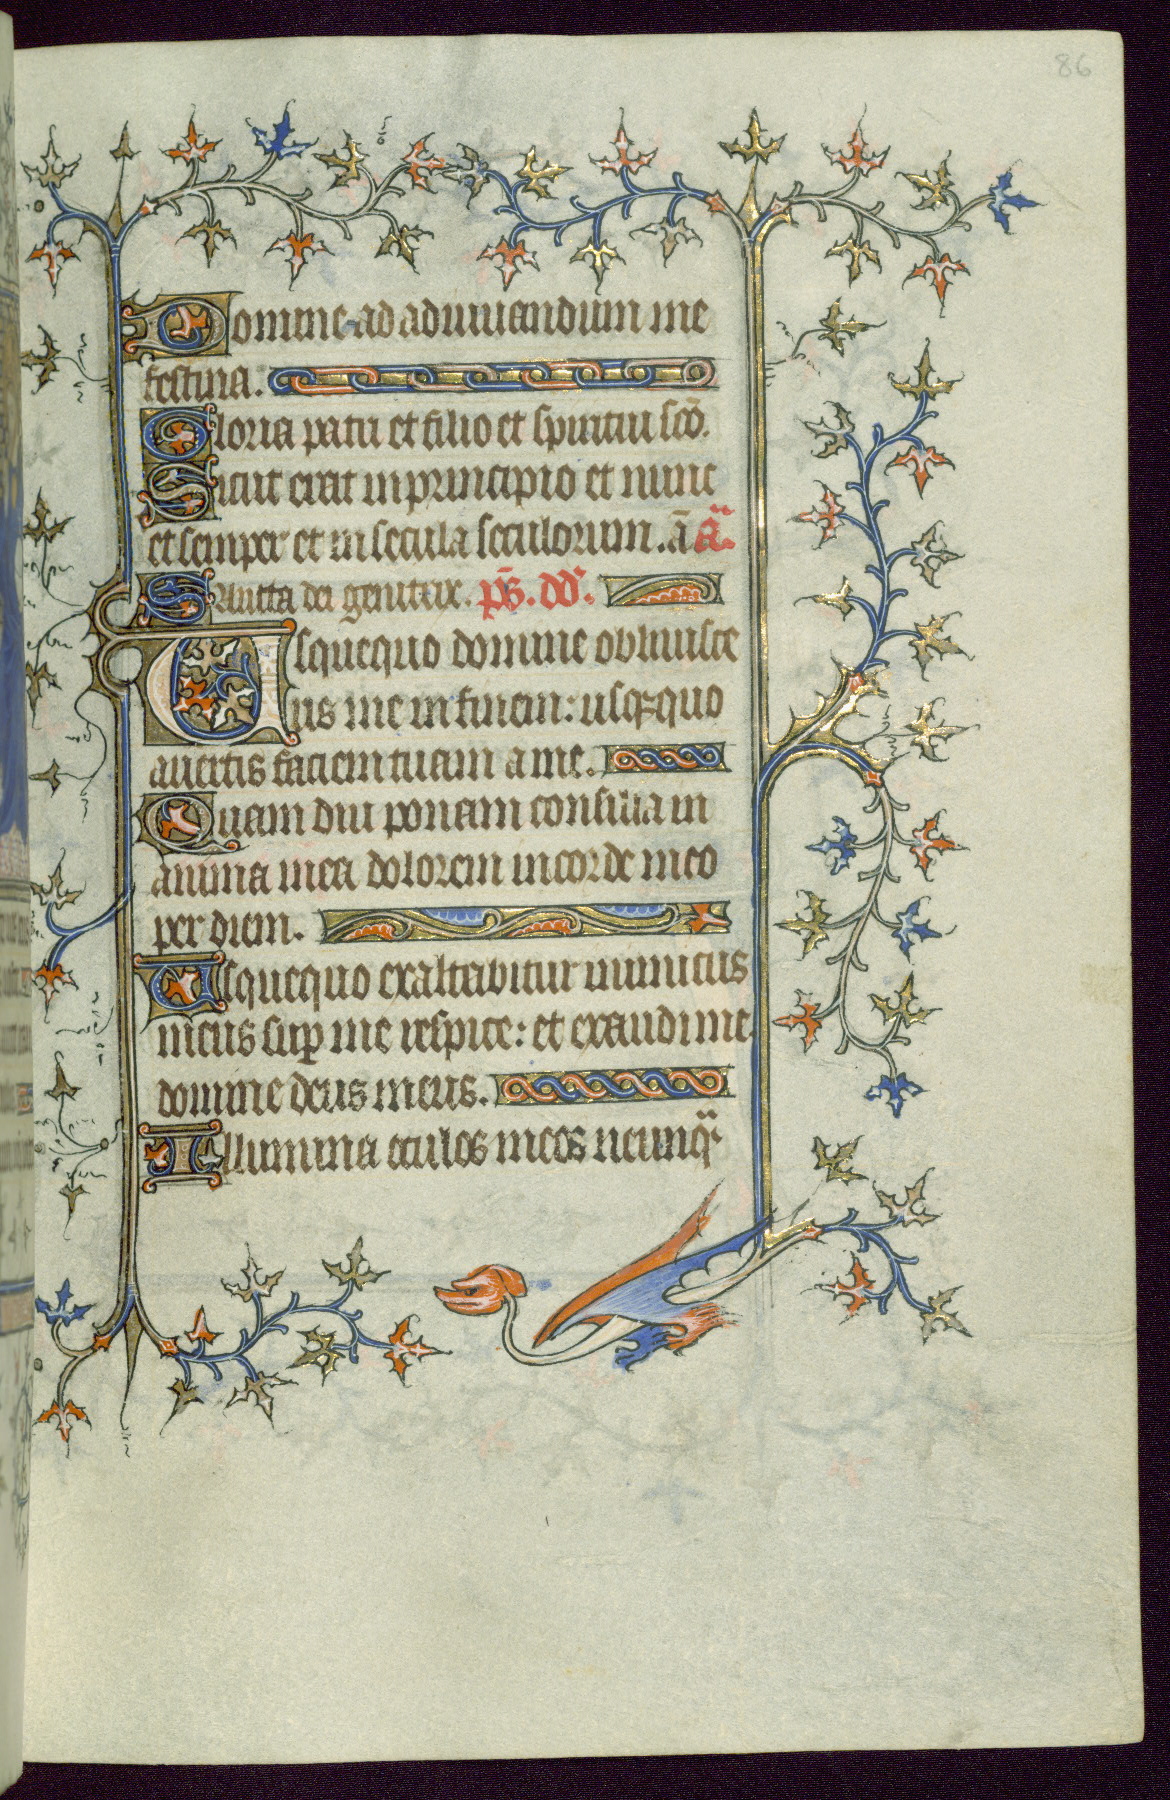 86
Domine ad adiuuandum me
festina.
Gloria patri et filio et spiritui sc̄o.
Sicut erat in principio et nunc
et semper et in secula seculorum. am̄ an̄.
Sancta dei genitrix. ps̄. dd̄.
Usquequo domine obliuisce
ris me in finem: usq̄quo
auertis faciem tuam a me.
Quam diu ponam consilia in
anima mea dolorem in corde meo
per diem.
Usquequo exaltabitur inimicus
meus suꝑ me respice: et exaudi me
domine deus meus.
Illumina oculos meos ne unq̄